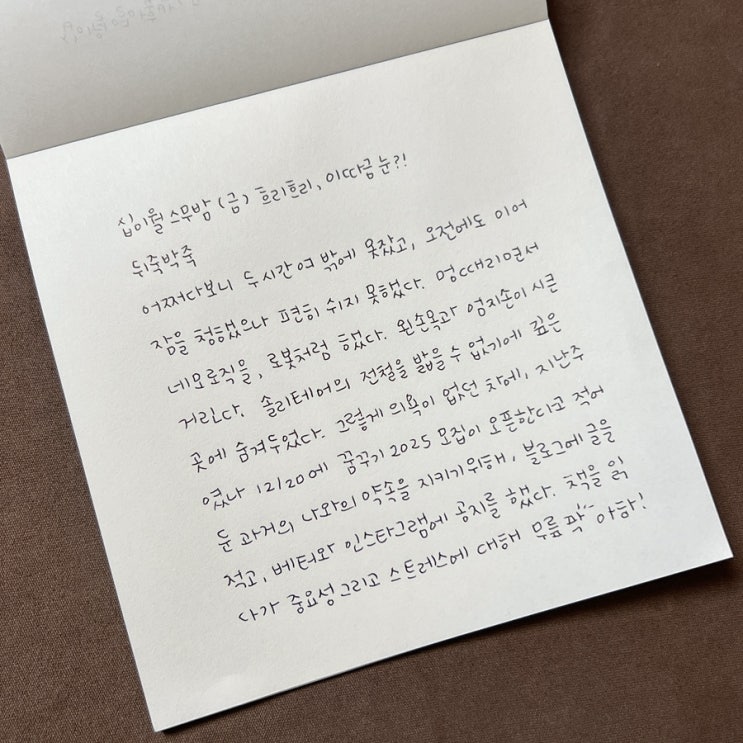 십이월 스무밤 (금) 흐리흐리, 이따금 눈?!
뒤죽박죽
어쩌다보니 두시간여 밖에 못잤고, 오전에도 이어
잠을 청했으나 편히 쉬지 못했다. 멍때리면서
네모로직을, 로봇처럼 했다. 왼손목과 엄지손이 시큰
거린다. 솔리테어의 전철을 밟을 수 없기에 깊은
곳에 숨겨두었다. 그렇게 의욕이 없던 차에, 지난주
였나 12/20에 꿈꾸기 2025 모집이 오픈한다고 적어
둔 과거의 나와의 약속을 지키기 위해, 블로그에 글을
적고, 베터와 인스타그램에 공지를 했다. 책을 읽
다가 중요성 그리고 스트레스에 대해 무릎 팍 아하!